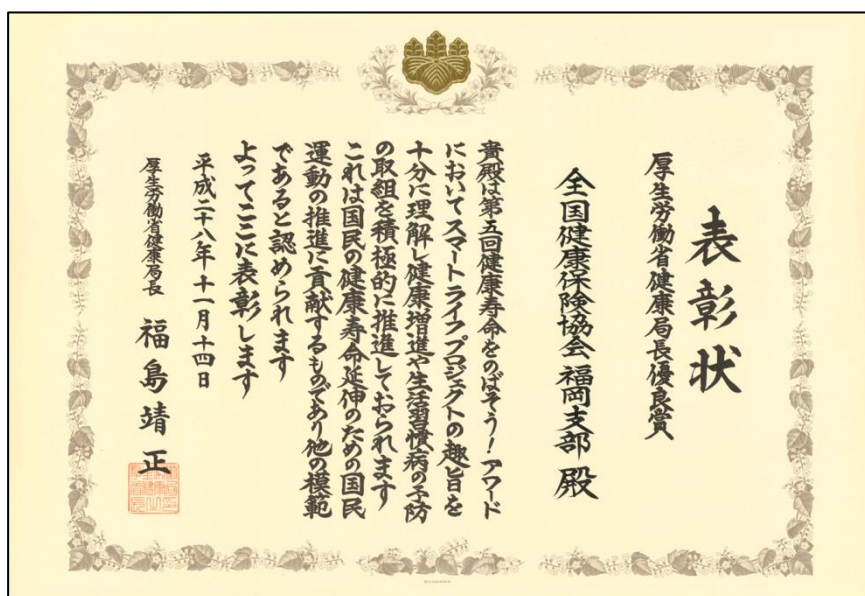 表彰状
厚生労働省健康局長優良賞
全国健康保険協会 福岡支部 殿
貴殿は第五回健康寿命をのばそう！アワード
においてスマートライフプロジェクトの趣旨を
十分に理解し健康増進や生活習慣病の予防
の取組を積極的に推進しておられます
これは国民の健康寿命延伸のための国民
運動の推進に貢献するものであり他の模範
であると認められます
よってここに表彰します
平成二十八年十一月十四日
厚生労働省健康局長 福島靖正